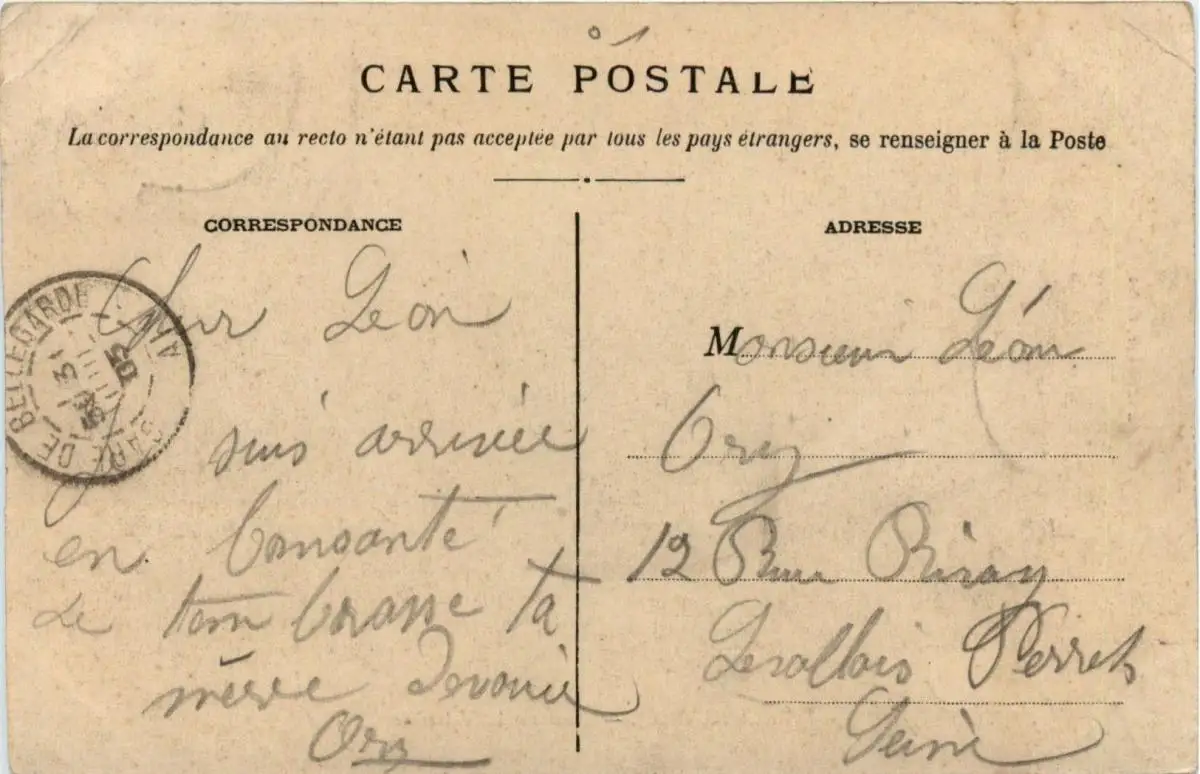 CARTE POSTALE
La correspondance au recto n'étant pas acceptée par tous les pays étrangers, se renseigner à la Poste
CORRESPONDANCE
Cher Léon
suis arrivée
en bonsanté
Je tem brasse ta
mère
Ory
ADRESSE
Monsieur Léon
Ory
12 Rue Rivay
Levallois Perret
Seine
GARE DE BELLEGARDE
AIN
31
05